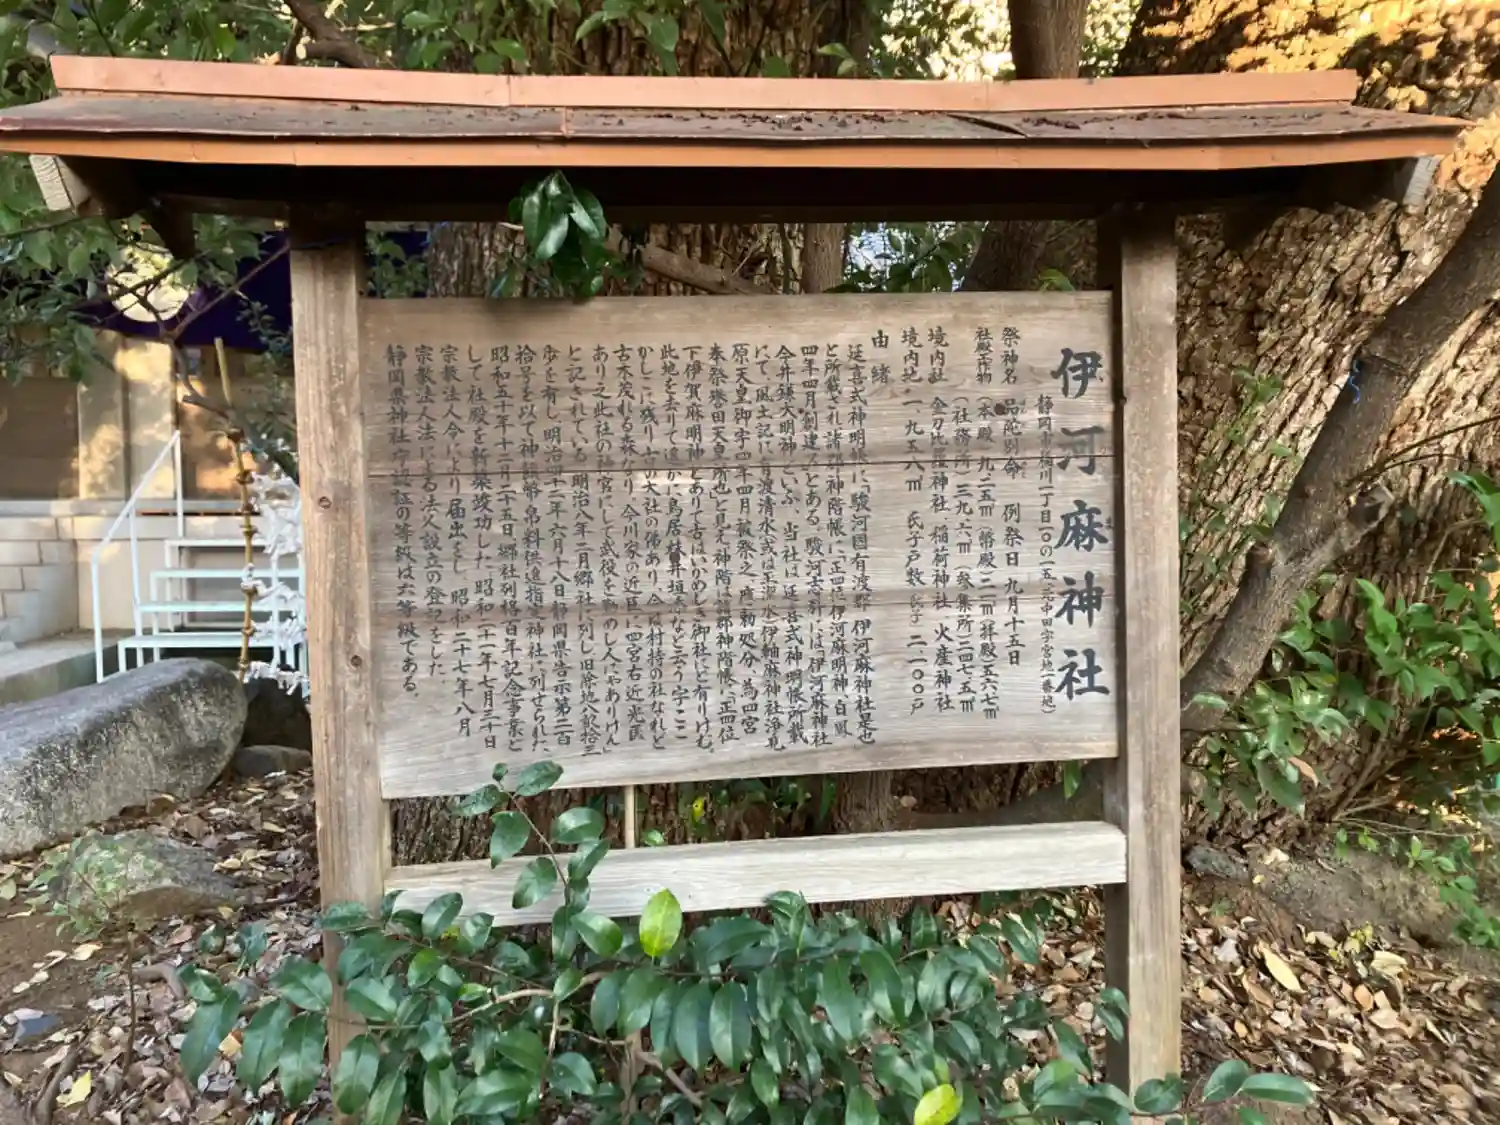 伊河麻神社
静岡市稲川一丁目一〇の一五(元中田字宮地一番地)
祭神名 品陀別命 例祭日 九月十五日
社殿工作物 (本殿)九.二五㎡(幣殿)二一㎡(拝殿)五六.七㎡
(社務所)三九.六㎡(参集所)二四七.五㎡
境内社 金刀比羅神社 稲荷神社 火産神社
境内地 一、九五八㎡ 氏子戸数 二一〇〇戸
由緒
延喜式神明帳に「駿河国有渡郡 伊河麻神社是也
と所載され諸郡神階帳に正四位伊河麻明神、白鳳
四年四月創建などとある。駿河志料には「伊河麻神社
今井鎌大明神といふ、当社は延喜式神明帳所載
にて、風土記に有渡清水或は玉清水伊軸麻神社浄見
原天皇御宇四年四月被祭之 応勅処分 為四宮
奉祭誉田天皇所也と見え神階は諸郡神階帳に正四位
下伊賀麻明神とありて古はいかめしき御社にと有りけむ、
此地を去りて遙かに鳥居 今井垣本などと云う字ここ
かしこに残り古の大社の俤あり、今は村持の社なれど
古木茂れる森なり、今川家の近臣に四宮右近光匡
あり之此社の神官にして武役を勤めし人にやありけん
と記されている。明治八年二月郷社に列し旧除地記拾三
を有し、明治四十二年六月十八日静岡県告示第二百
拾号を以て神饌幣帛料供進指定神社に列せられた
昭和五十年十二月二十五日 郷社列格百年記念事業と
して 社殿を新築竣功した 昭和二十一年七月三十日
宗教法人令により届出をし 昭和二十七年八月
宗教法人法による法人設立の登記をした。
静岡県神社庁認証の等級は六等級である。